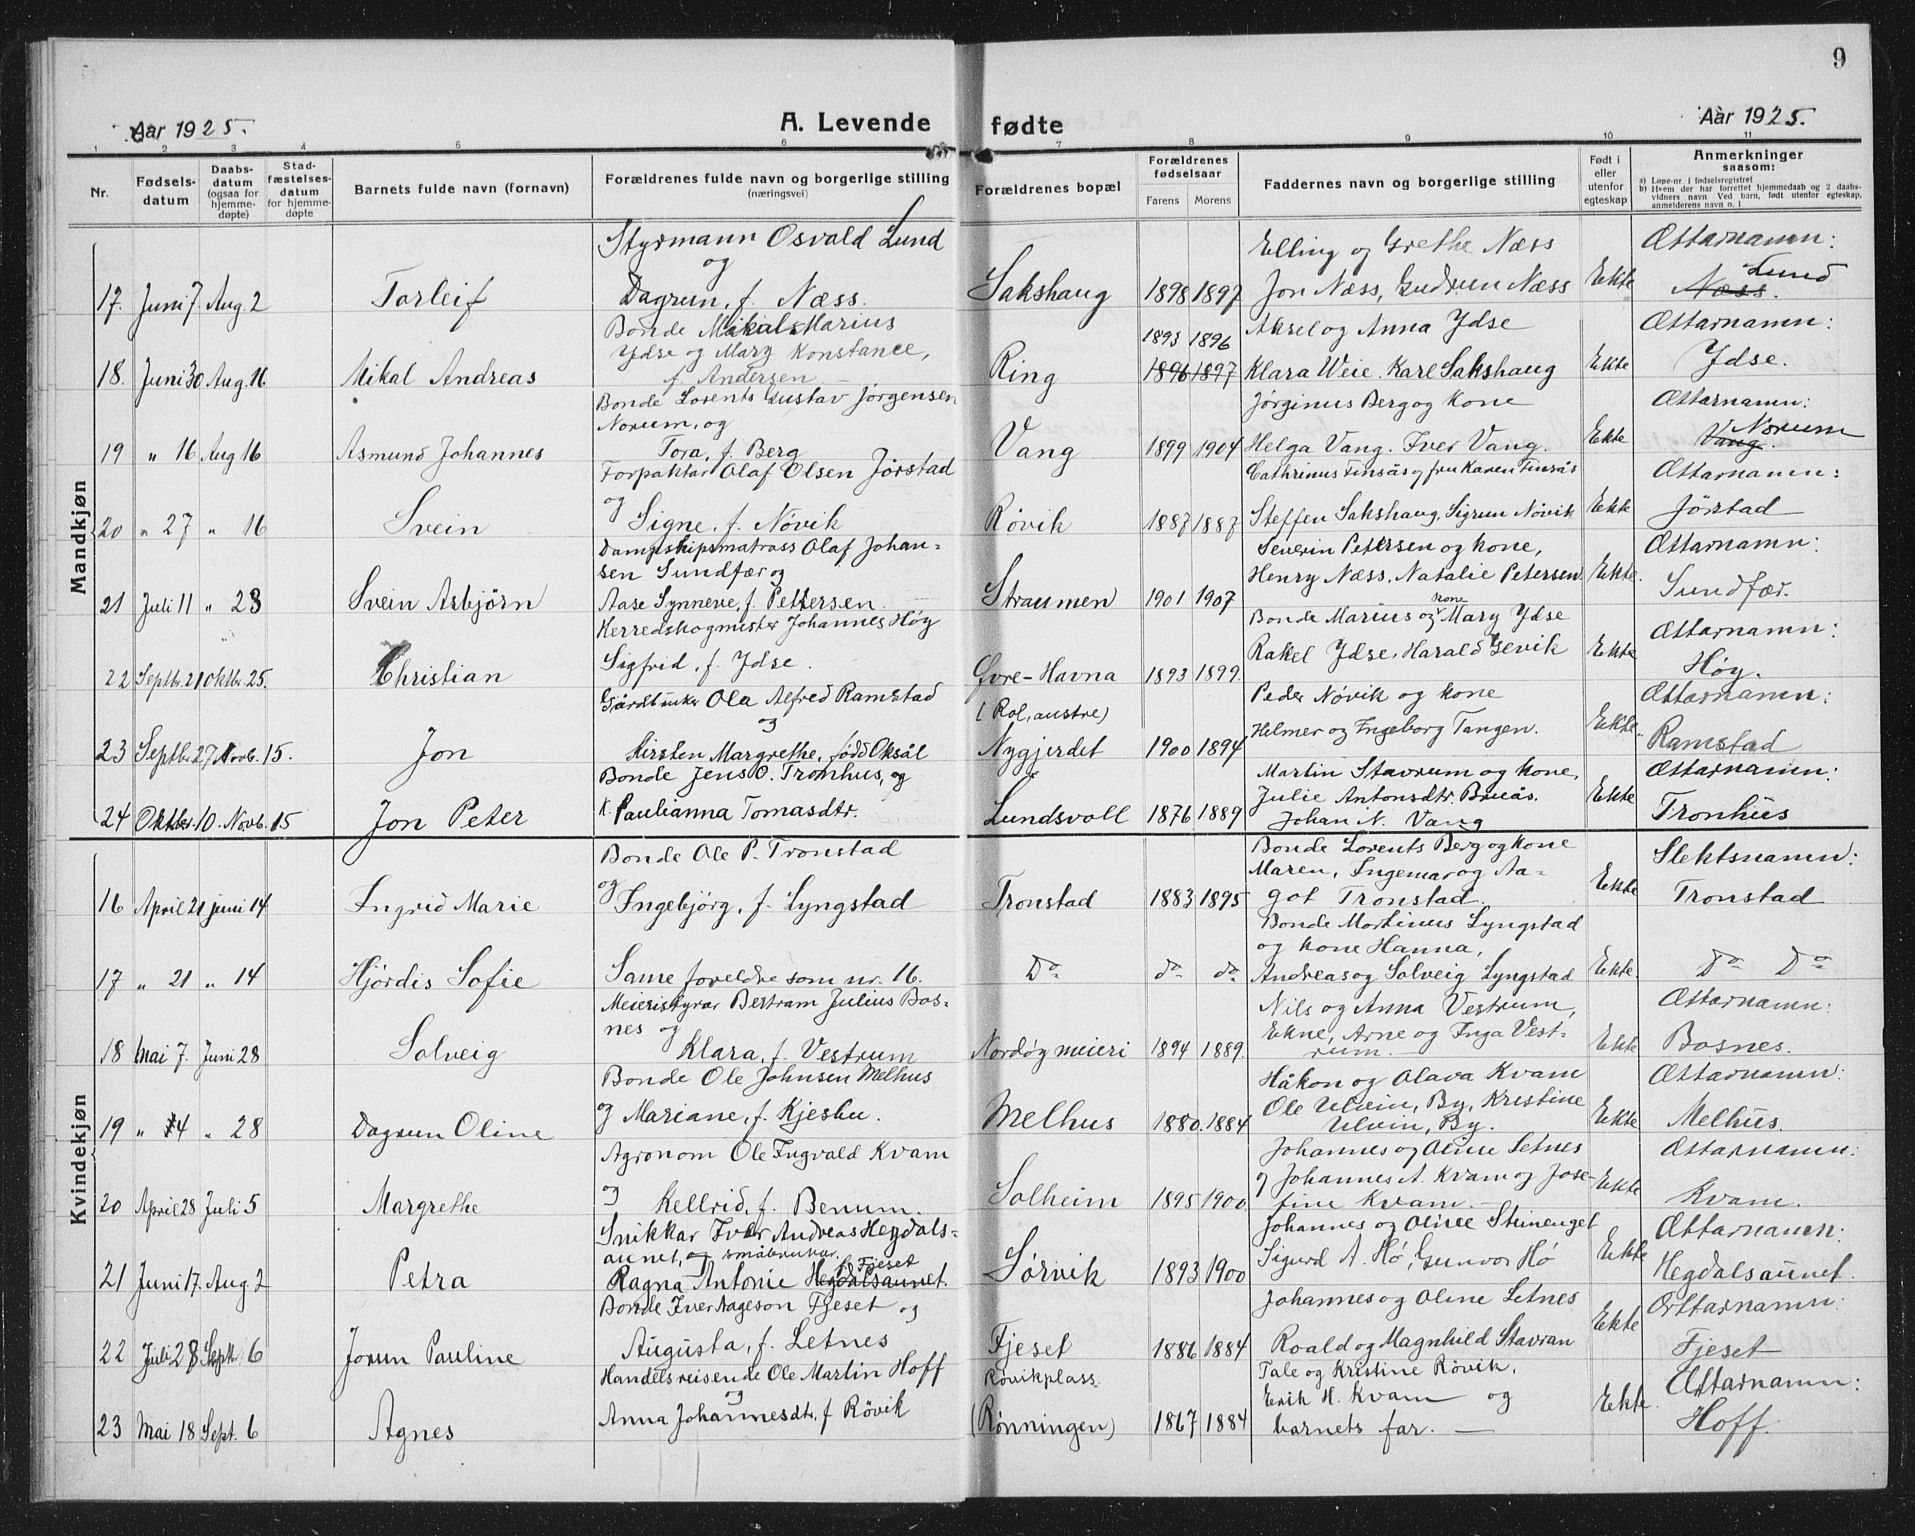 9
Aar 1925.
A. Levende
fødte
Aar 1925.
1 2 3 4 5 6 7 8 9 10 11
Nr.
Fødsels-
datum
Daabs-
datum
(ogsaa for
hjemme-
døpte)
Stad-
fæstelses-
datum
for hjemme-
døpte
Barnets fulde navn (fornavn)
Forældrenes fulde navn og borgerlige stilling
(næringsvei)
Forældrenes bopæl
Forældrenes
fødselsaar
Farens Morens
Faddernes navn og borgerlige stilling
Født i
eller
utenfor
egteskap
Anmerkninger
saasom:
a) Løpe-nr. i fødselsregistret
b) Hvem der har forrettet hjemmedaab og 2 daabs-
vidners navn Ved barn, født utenfor egteskap,
anmelderens navn o. l
Mandkjøn
Styrmann Osvald Lund
og
17. Juni 7. Aug. 2 Torleif Dagrun, f. Næss. Sakshaug 1898 1897
Elling og Grethe Næss
Jon Næss, Gudrun Næss Ekte
Ættarnamn:
Lund
Næss.
Bonde Mikal Marius
Ydse og Mary Konstance,
f. Andersen
18. Juni 30 Aug. 16 Mikal Andreas Ring 1893 1896
1896 1897
Aksel og Anna Ydse
Klara Weie. Karl Sakshaug Ekte
Ættarnamn:
Ydse.
Bonde Lorents Gustav Jørgensen
Norum, og
Tora, f. Berg
19 " 16 Aug 16 Asmund Johannes Vang 1899 1904
Jørginus Berg og kone
Helga Vang. Iver Vang. Ekte
Ættarnamn:
Norum
Vang.
Forpaktar Olaf Olsen Jørstad
og
Signe, f. Nøvik
20 " 27 " 16 Svein Røvik 1887 1887
Cathrinus Finsås og fru Karen Finsås
Steffen Sakshaug, Sigrun Nøvik Ekte
Ættarnamn:
Jørstad
Dampskipsmatross Olaf Johan-
sen Sundfær og
Aase Synneve, f. Pettersen.
21 Juli 11 " 23 Svein Asbjørn Straumen 1901 1907
Severin Petersen og kone,
Henry Næss, Natalie Petersen. Ekte.
Ættarnamn:
Sundfær.
Herredskogmester Johannes Høy
Sigfrid, f. Ydse.
22 Septbr. 21 Oktbr. 25. Christian Øvre-Havna 1893 1899
Bonde Marius og kone Mary Ydse
Rakel Ydse, Harald Gevik Ekte
Ættarnamn:
Høy.
Gårdbruker Ola Alfred Ramstad
og
Kirsten Margrethe, född Oksål
23 Septbr. 27 Novb. 15. Jon (Rol, austre)
Nygjerdet 1900 1894
Peder Nøvik og kone
Helmer og Ingeborg Tangen. Ekte.
Ættarnamn:
Ramstad
Bonde Jens O. Tronhus, og
k. Paulianna Tomasdtr.
24 Oktbr. 10. Novb. 15 Jon Peter Lundsvoll 1876 1889
Martin Stavrum og kone,
Julie Antonsdtr. Bruås.
Johan N. Vang Ekte
Ættarnamn:
Tronhus
Kvindekjøn
Bonde Ole P. Tronstad
og
Ingebjørg, f. Lyngstad
16 April 21 juni 14 Ingrid Marie Tronstad 1883 1895
Bonde Lorents Berg og kone
Maren, Ingemar og Aa-
got Tronstad. Ekte
Slektsnamn:
Tronstad
17 " 21 " 14 Hjördis Sofie Same foreldre som nr. 16. Do do do
Bonde Mortinus Lyngstad
og kone Hanna,
Andreas og Solveig Lyngstad Ekte.
Do Do
Meieristyrar Bertram Julius Bos-
nes og
Klara, f. Vestrum
18 Mai 7. Juni 28 Solveig Nordøg meieri 1894 1889.
Nils og Anna Vestrum,
Ekne, Arne og Inga Vest-
rum. Ekte
Ættarnamn:
Bosnes.
Bonde Ole Johnsen Melhus
og Mariane, f. Kjeshu.
19 " 14 " 28 Dagrun Oline Melhus 1880. 1884
Håkon og Olava Kvam
Ole Ulvin, By, Kristine
Ulvin, By. Ekte
Ættarnamn:
Melhus.
Agronom Ole Ingvald Kvam
og
Kellrid, f. Benum.
20 April 28 Juli 5 Margrethe Solheim 1895 1900
Johannes og Oline Letnes
og Johannes A. Kvam og Jose-
fine Kvam. Ekte
Ættarnamn:
Kvam.
Snikkar Iver Andreas Hegdals-
aunet, og småbrukar.
f. Fjeset
Ragna Antonie Hegdalsaunet.
21 Juni 17. Aug. 2 Petra Sørvik 1893 1900
Johannes og Oline Steinenget
Sigurd A. Hø, Gunvor Hø Ekte
Ættarnamn:
Hegdalsaunet.
Bonde Iver Aageson Fjeset og
Augusta, f. Letnes
22 Juli 28 Sept. 6 Jorun Pauline Fjeset 1886 1884
Johannes og Oline Letnes
Roald og Magnhild Stavran Ekte
Ættarnamn:
Fjeset
Handelsreisende Ole Martin Hoff
og
Anna Johannesdtr, f Røvik
23 Mai 18 Sept. 6 Agnes Røvikplass.
(Rønningen) 1867 1884
Tale og Kristine Røvik.
Erik H. Kvam og
barnets far. Ekte.
Ættarnamn:
Hoff.